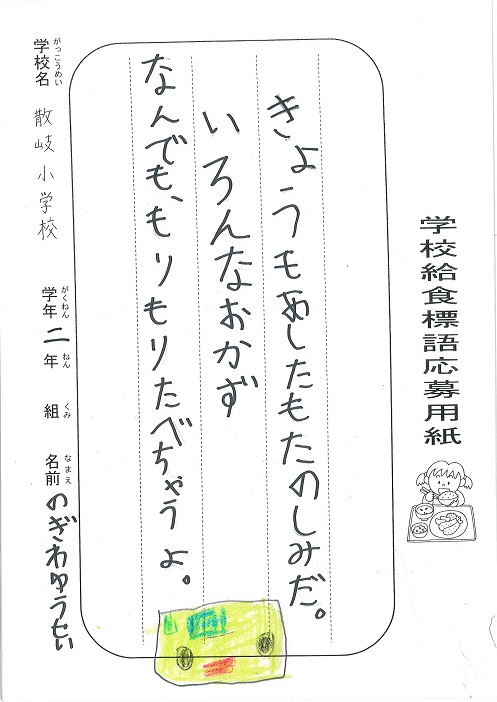 学校給食標語応募用紙
きょうもあしたもたのしみだ。
いろんなおかず
なんでも、もりもりたべちゃうよ。
がっこうめい
学校名 散岐小学校
がくねん ねん くみ なまえ
学年 二年 組 名前 のぎわゆうせい